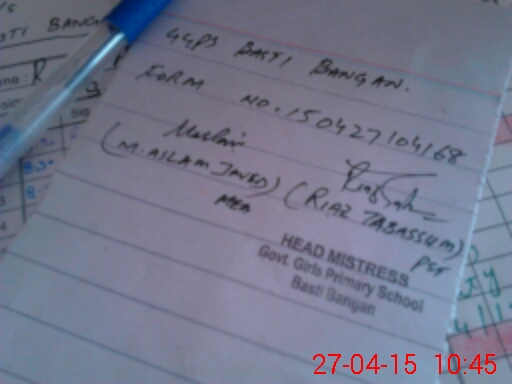 GGPS BASTI BANGAN.
FORM NO. 150427104168
(M. ASLAM JAVED) (RIAZ TABASSUM)
MEA PST
HEAD MISTRESS
Govt. Girls Primary School
Basti Bangan
27-04-15 10:45